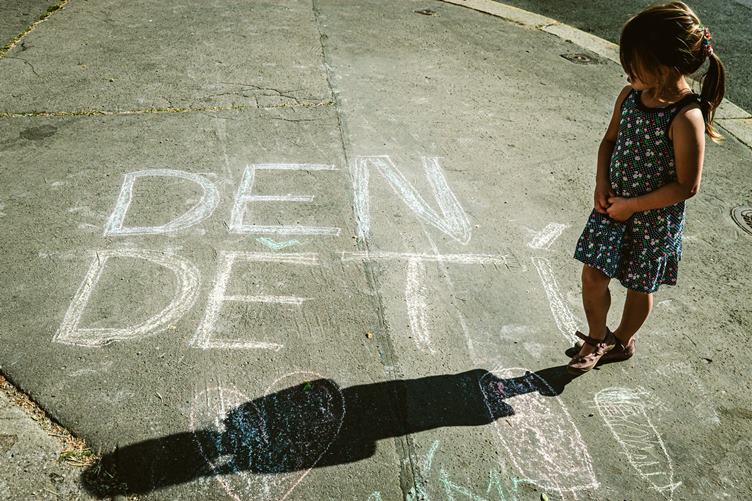 DEN
DĚTÍ